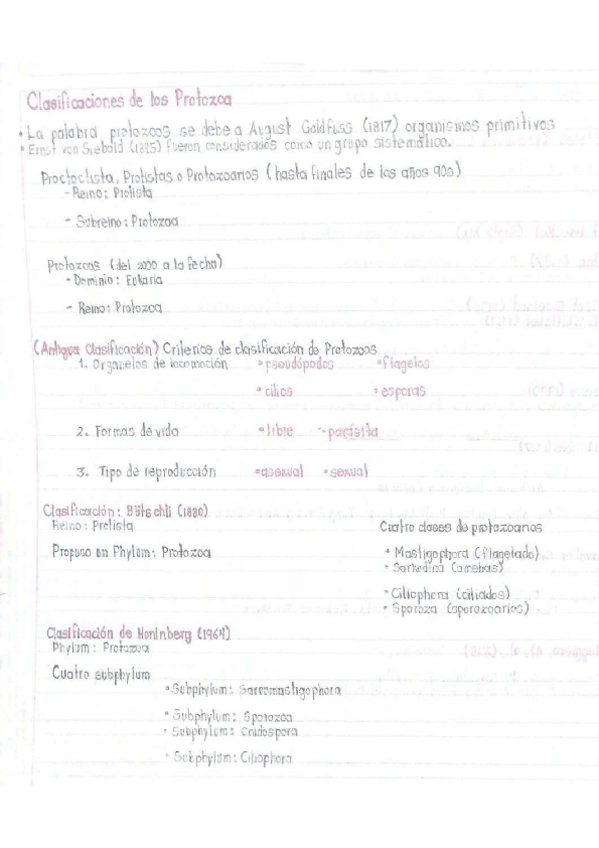 Clasificaciones de los Protozoa
• La palabra protozoos se debe a August Goldfuss (1817) organismos primitivos
• Ernst von Siebold (1845) fueron considerados como un grupo sistemático.
Proctoctista, Protistas o Protozoarios (hasta finales de los años 90s)
- Reino: Protista
- Subreino: Protozoa
Protozoos (del 2000 a la fecha)
- Dominio: Eukaria
- Reino: Protozoa
(Antigua Clasificación) Criterios de clasificación de Protozoos
1. Organelos de locomoción • pseudópodos • flagelos
• cilios • esporas
2. Formas de vida • libre - parásita
3. Tipo de reproducción • asexual • sexual
Clasificación: Bütschli (1880)
Reino: Protista Cuatro clases de protozoarios
Propuso un Phylum: Protozoa • Mastigophora (flagelado)
• Sarkodina (amebas)
• Ciliophora (ciliados)
• Sporozoa (esporozoarios)
Clasificación de Honinberg (1964)
Phylum: Protozoa
Cuatro subphylum
• Subphylum: Sarcomastigophora
• Subphylum: Sporozoa
• Subphylum: Cnidospora
• Subphylum: Ciliophora